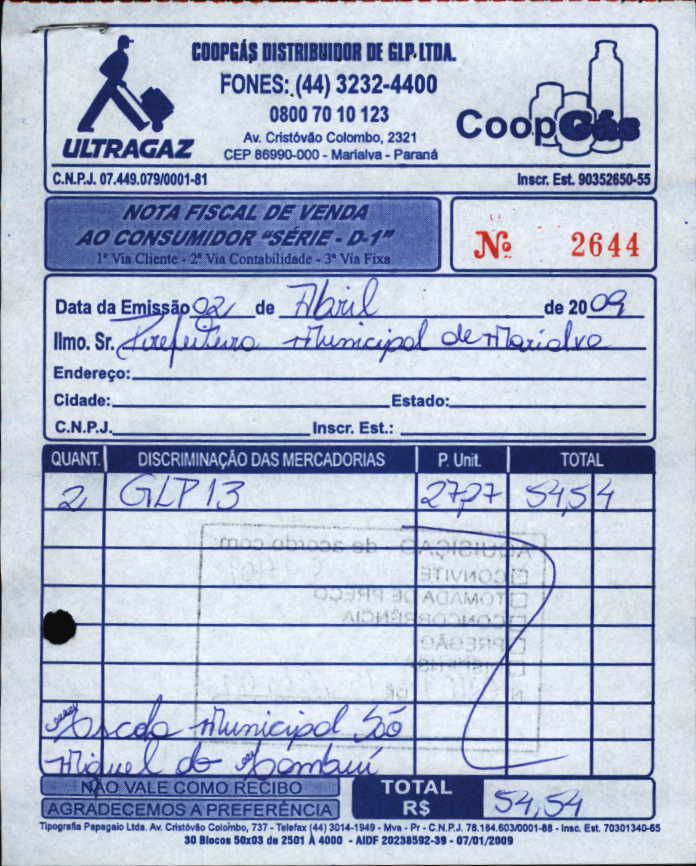 COOPGÁS DISTRIBUIDOR DE GLP LTDA.
FONES: (44) 3232-4400
0800 70 10 123
Av. Cristóvão Colombo, 2321
CEP 86990-000 - Marialva - Paraná
ULTRAGAZ
CoopGás
C.N.P.J. 07.449.079/0001-81
Inscr. Est. 90352650-55
NOTA FISCAL DE VENDA
AO CONSUMIDOR "SÉRIE - D-1"
1ª Via Cliente - 2ª Via Contabilidade - 3ª Via Fixa
Nº 2644
Data da Emissão 02 de Abril de 2009
Ilmo. Sr. Prefeitura Municipal de Marialva
Endereço:
Cidade: Estado:
C.N.P.J. Inscr. Est.:
QUANT. DISCRIMINAÇÃO DAS MERCADORIAS P. Unit. TOTAL
2 GLP 13 27,27 54,54
AQUISIÇÃO - de acordo com:
CONVITE
TOMADA DE PREÇO
CONCORRÊNCIA
PREGÃO
DISPENSA
Escola Municipal São
Miguel do Cambuí
NÃO VALE COMO RECIBO
AGRADECEMOS A PREFERÊNCIA
TOTAL R$ 54,54
Tipografia Papagaio Ltda. Av. Cristóvão Colombo, 737 - Telefax (44) 3014-1949 - Mva - Pr - C.N.P.J. 78.184.603/0001-88 - Insc. Est. 70301340-65
30 Blocos 50x03 de 2501 À 4000 - AIDF 20238592-39 - 07/01/2009